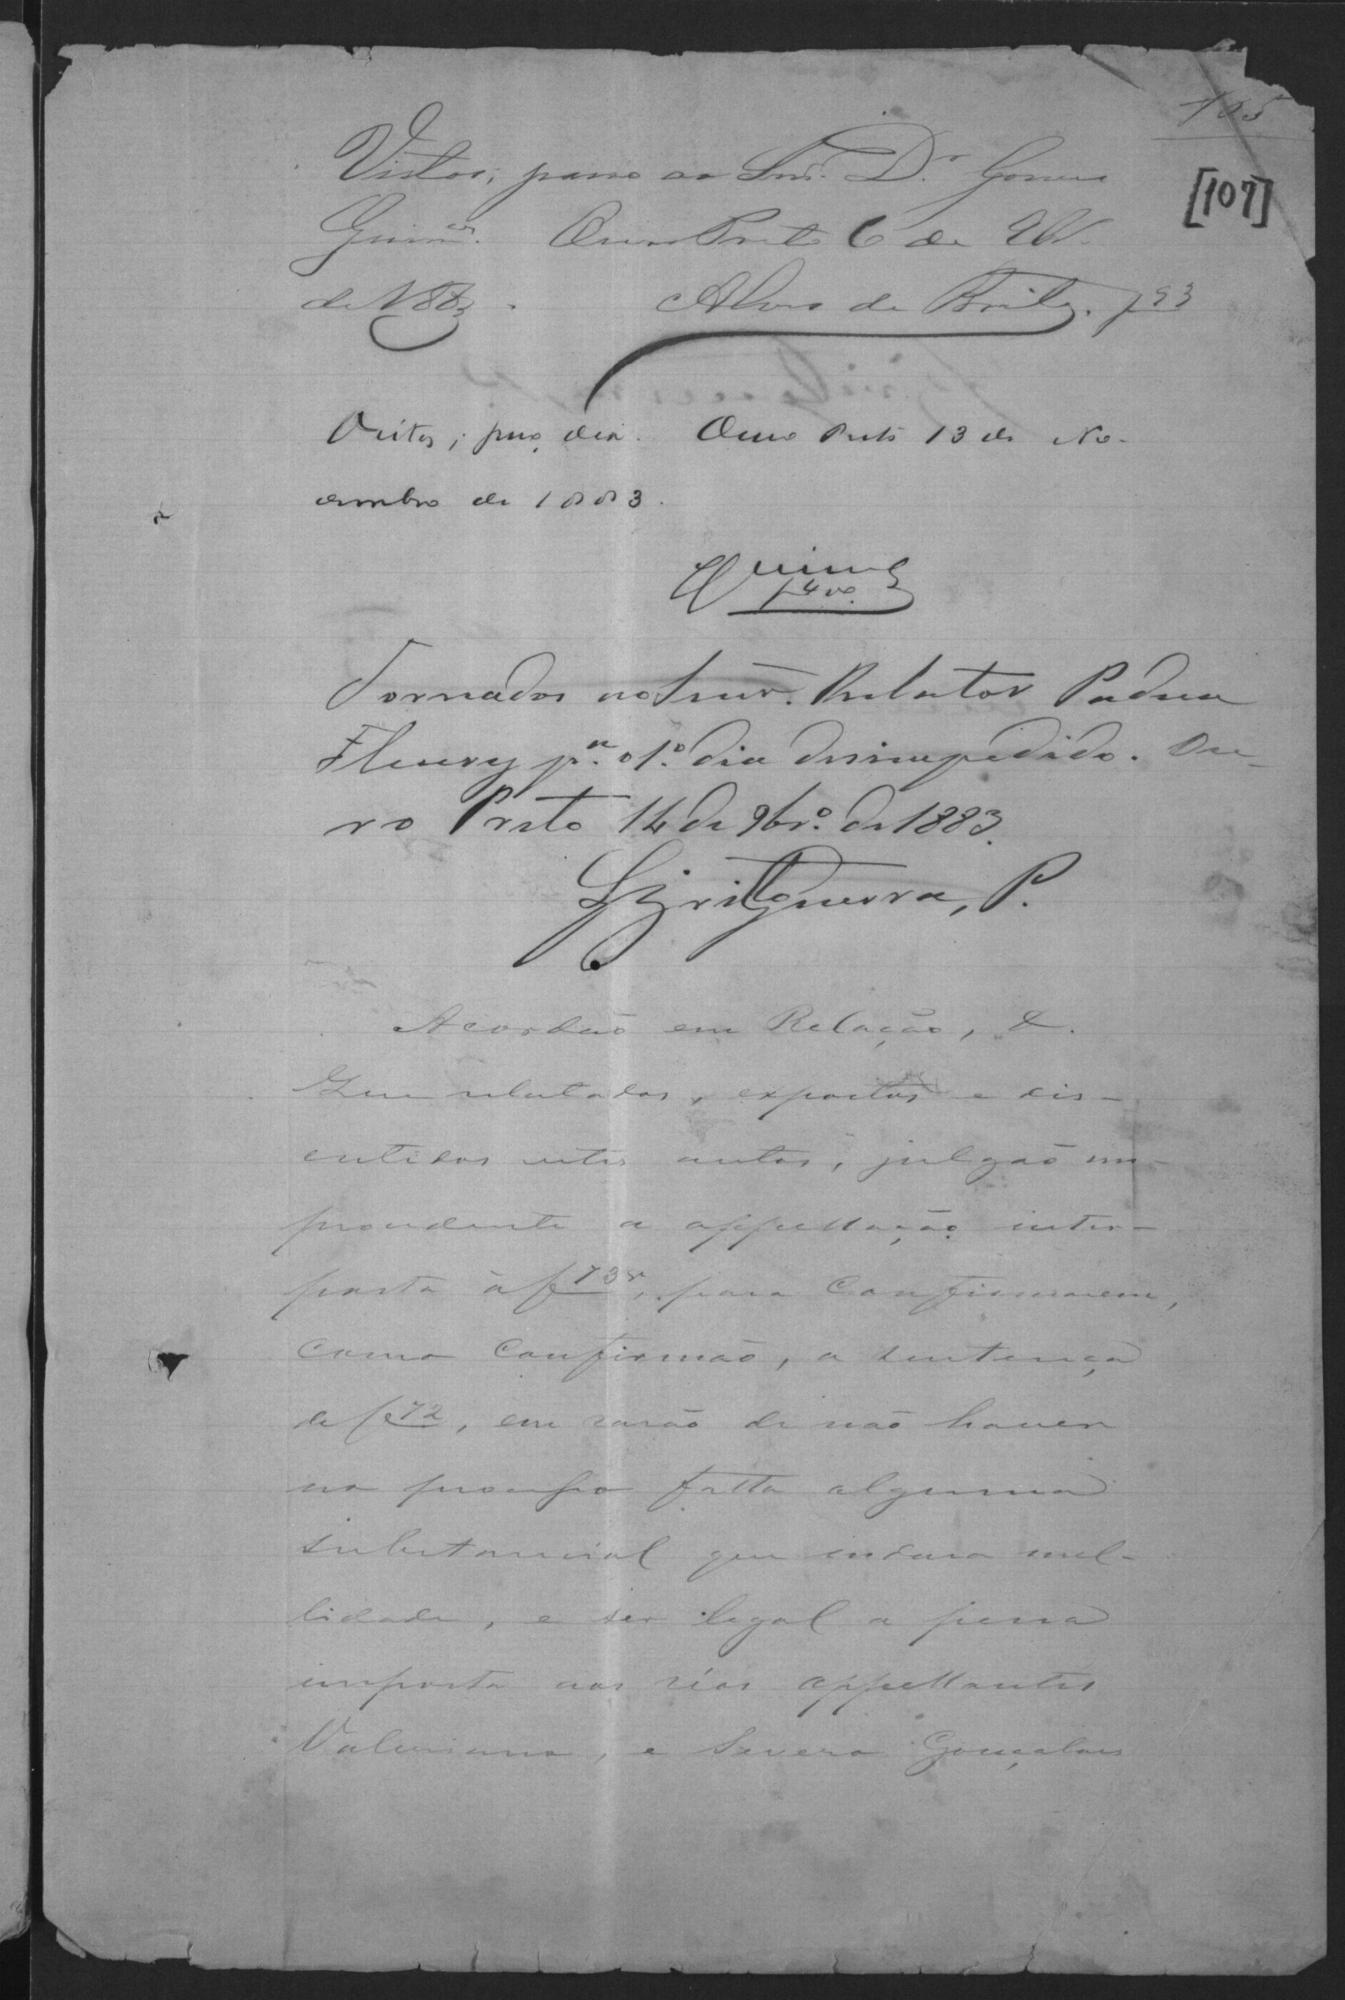 105
[107]
Vistos; passo ao Snr. Dr. Gomes
Guimes. Ouro Preto 6 de 9br.
de 1883. Alves de Brito.
Vistos; peço dia. Ouro Preto 13 de No-
vembro de 1883.
Tornados ao Snr. Relator Padua
Fleury pa. o 1º dia desimpedido. Ou-
ro Preto 14 de 9bro. de 1883.
Guerra, P.
Acordão em Relação, &.
Que relatados, expostos e dis-
cutidos estes autos, julgão im-
procedente a appellação inter-
posta á f 73v, para confirmarem,
como confirmão, a sentença
de f 72, em rasão de não haver
no processo falta alguma
substancial que indusa nul-
lidade, e ser legal a pena
imposta aos réos appellantes
Valeriano, e Severo Gonçalves